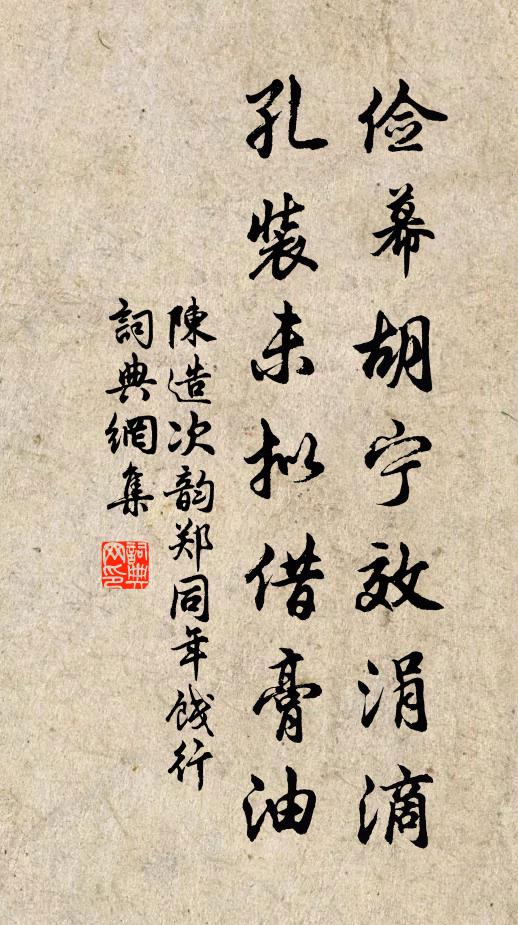 俭幕胡宁效涓滴
孔装未拟借膏油
陳造次韵郑同年餞行
詞典網集
詞典网印